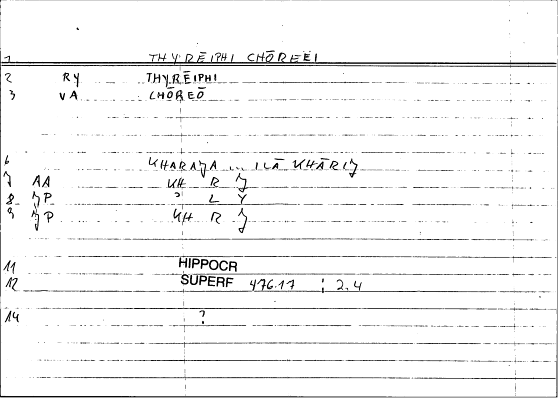 1 THYRĒIPHI CHŌREEĒI
2 RY THYRĒIPHI
3 VA CHŌREŌ
6 KHARAȜA ... ILĀ KHĀRIȜ
7 AA KH R Ȝ
8 ȜP ? L Y
9 ȜP KH R Ȝ
11 HIPPOCR
12 SUPERF 476.17 ; 2.4
14 ?